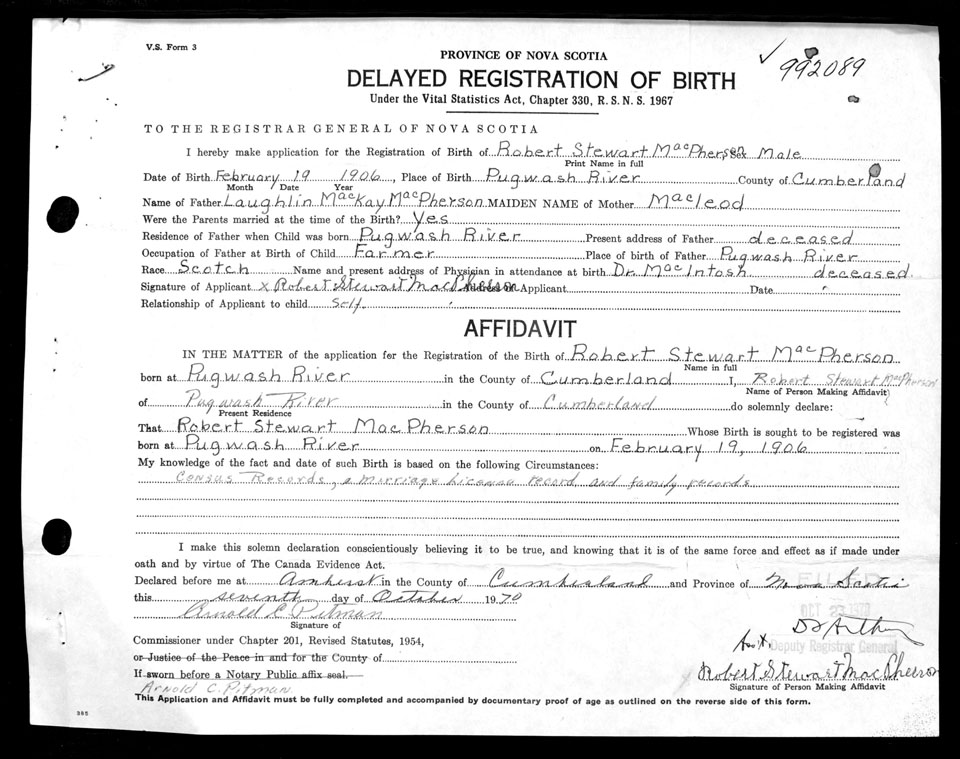 V.S. Form 3
PROVINCE OF NOVA SCOTIA
✓ 992089
DELAYED REGISTRATION OF BIRTH
Under the Vital Statistics Act, Chapter 330, R.S.N.S. 1967
TO THE REGISTRAR GENERAL OF NOVA SCOTIA
I hereby make application for the Registration of Birth of Robert Stewart MacPherson Sex Male
Print Name in full
Date of Birth February 19 1906, Place of Birth Pugwash River County of Cumberland
Month Date Year
Name of Father Laughlin MacKay MacPherson MAIDEN NAME of Mother Macleod
Were the Parents married at the time of the Birth? Yes
Residence of Father when Child was born Pugwash River Present address of Father deceased
Occupation of Father at Birth of Child Farmer Place of birth of Father Pugwash River
Race Scotch Name and present address of Physician in attendance at birth Dr. MacIntosh deceased.
Signature of Applicant x Robert Stewart MacPherson Address of Applicant Date
Relationship of Applicant to child self.
AFFIDAVIT
IN THE MATTER of the application for the Registration of the Birth of Robert Stewart MacPherson
Name in full
born at Pugwash River in the County of Cumberland I, Robert Stewart MacPherson
Name of Person Making Affidavit
of Pugwash River in the County of Cumberland do solemnly declare:
Present Residence
That Robert Stewart MacPherson Whose Birth is sought to be registered was
born at Pugwash River on February 19, 1906
My knowledge of the fact and date of such Birth is based on the following Circumstances:
Census Records, a marriage license record and family records
I make this solemn declaration conscientiously believing it to be true, and knowing that it is of the same force and effect as if made under
oath and by virtue of The Canada Evidence Act.
Declared before me at Amherst in the County of Cumberland and Province of Nova Scotia
this seventh day of October 1970
Arnold C Pitman
OCT 23 1970
Signature of
Commissioner under Chapter 201, Revised Statutes, 1954,
Ass't. Deputy Registrar General
or Justice of the Peace in and for the County of
Robert Stewart MacPherson
If sworn before a Notary Public affix seal.
Signature of Person Making Affidavit
Arnold C. Pitman
This Application and Affidavit must be fully completed and accompanied by documentary proof of age as outlined on the reverse side of this form.
385